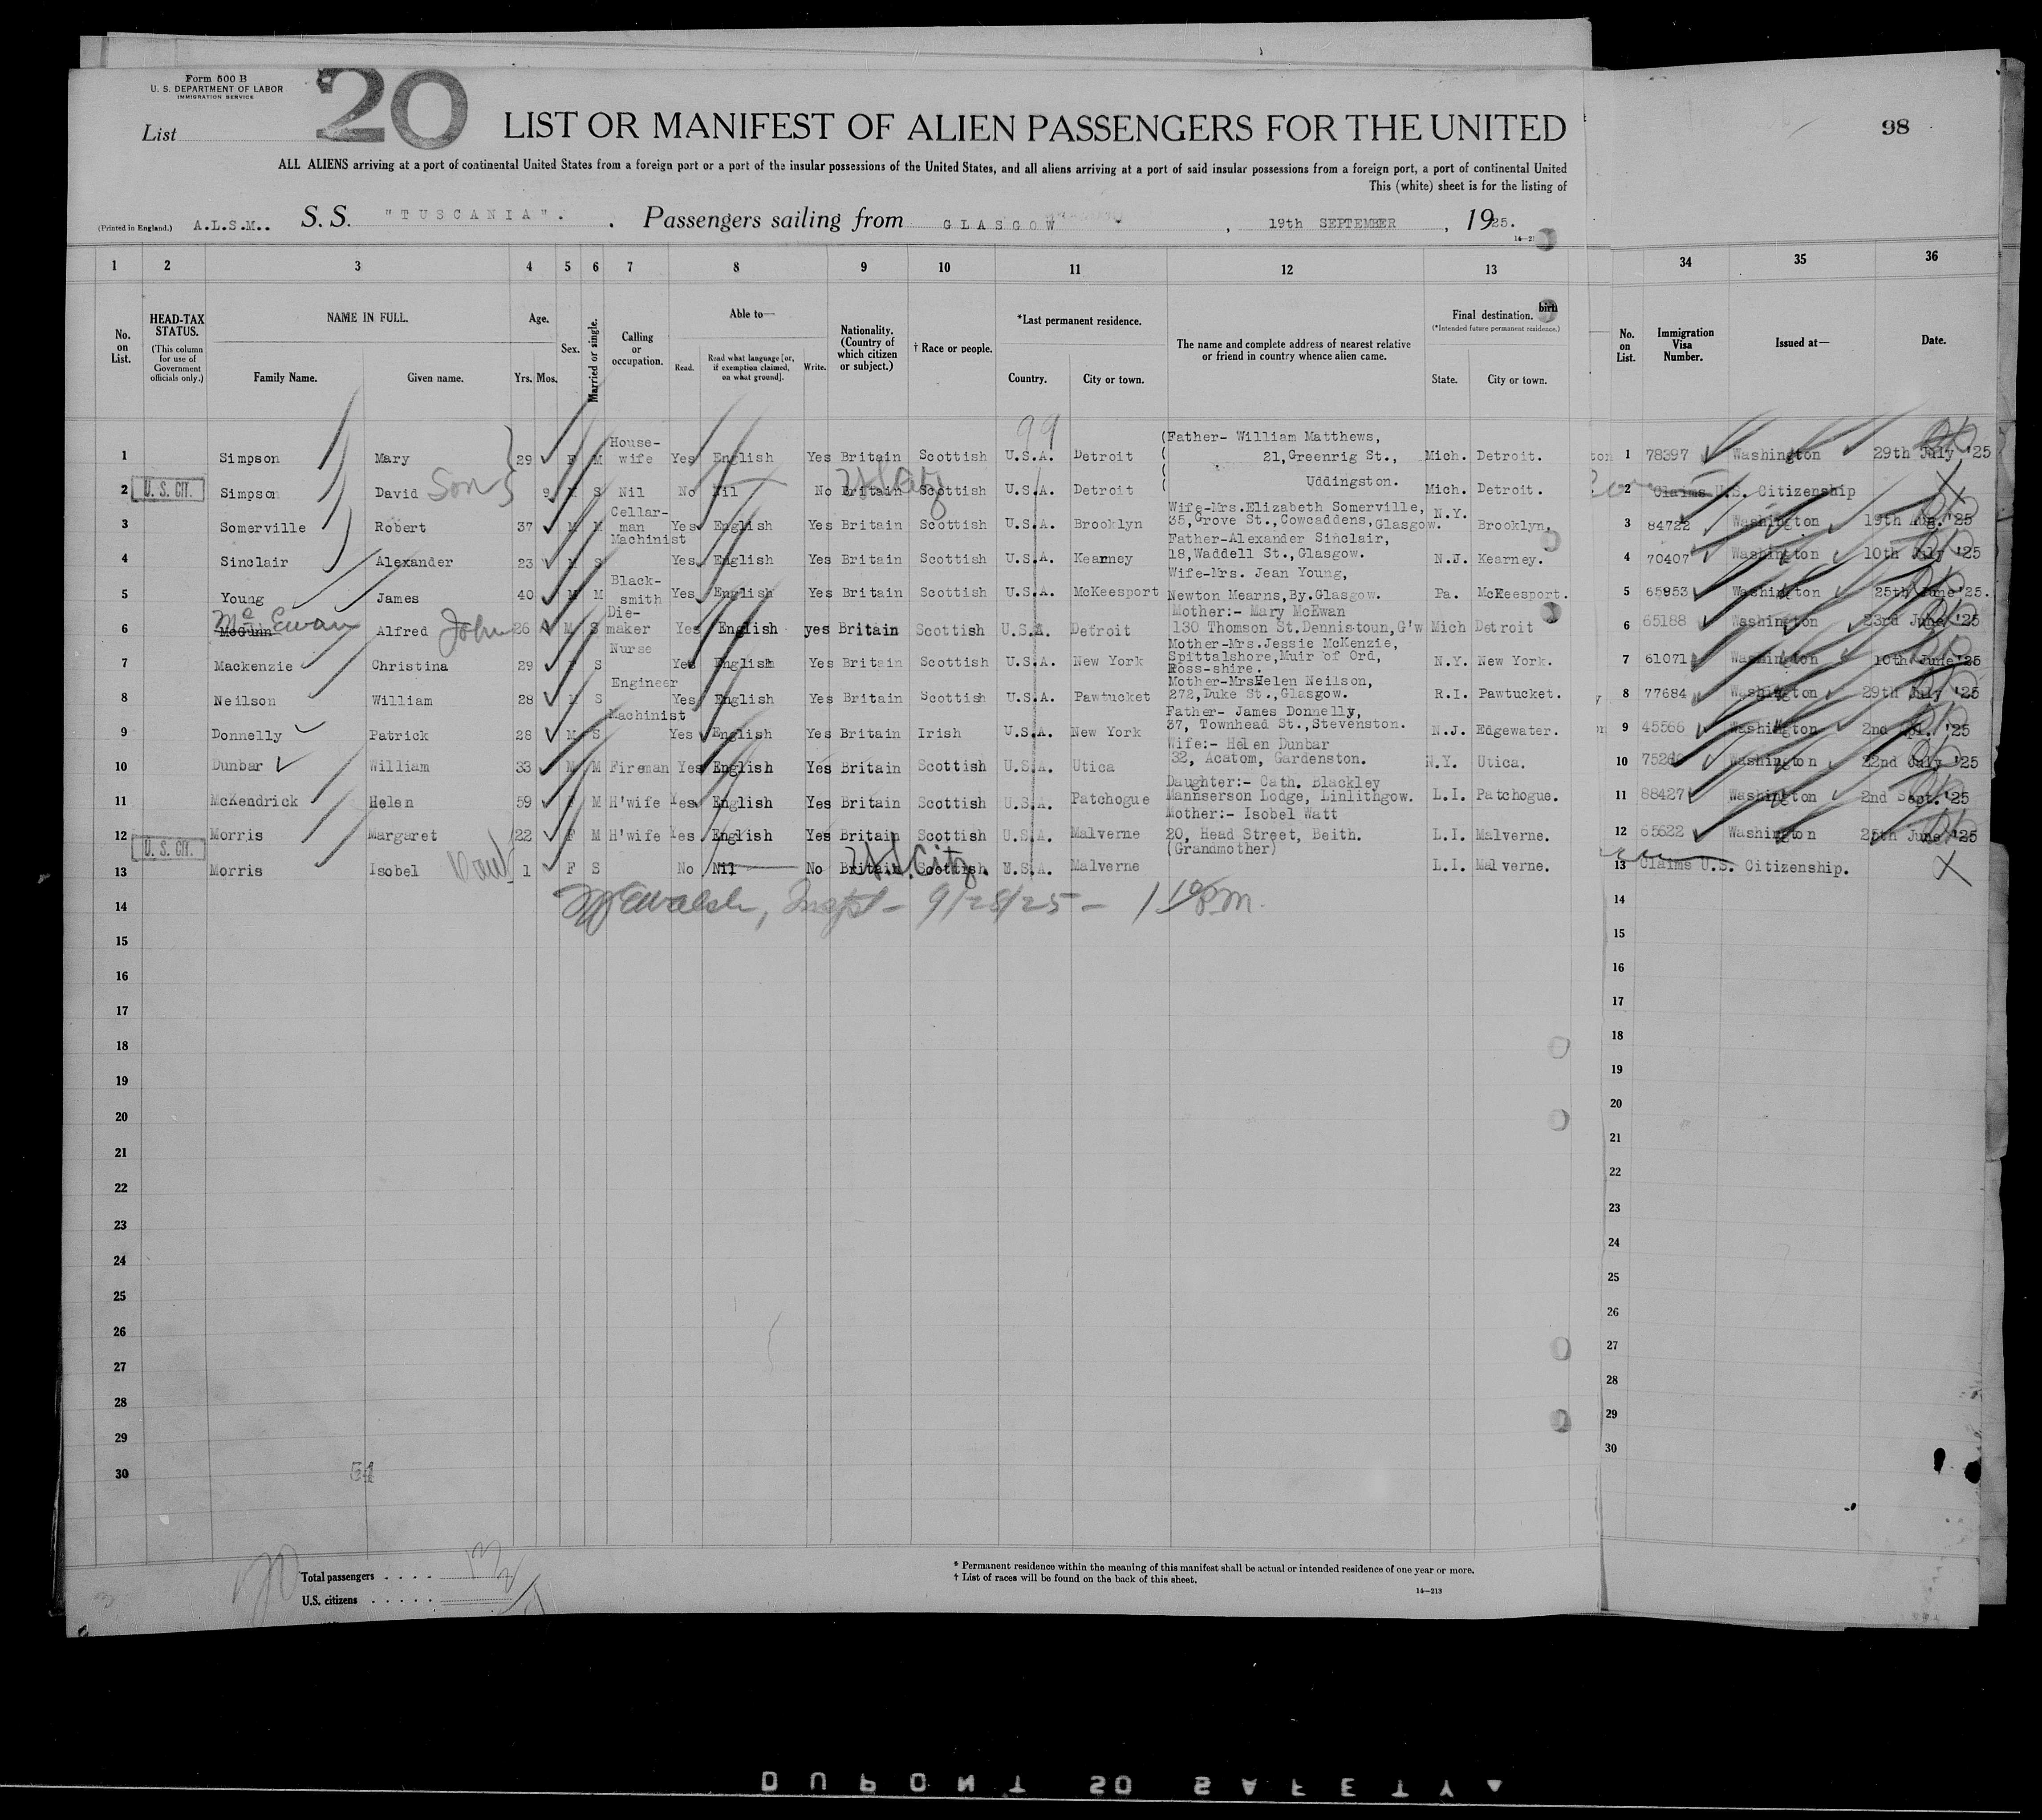 Form 500 B
U. S. DEPARTMENT OF LABOR
IMMIGRATION SERVICE
List 20
LIST OR MANIFEST OF ALIEN PASSENGERS FOR THE UNITED
98
ALL ALIENS arriving at a port of continental United States from a foreign port or a port of the insular possessions of the United States, and all aliens arriving at a port of said insular possessions from a foreign port, a port of continental United
This (white) sheet is for the listing of
(Printed in England.) A.L.S.M.. S. S. "TUSCANIA". Passengers sailing from GLASGOW, 19th SEPTEMBER, 1925.
1 2 3 4 5 6 7 8 9 10 11 12 13 34 35 36
No. on List.
HEAD-TAX STATUS. (This column for use of Government officials only.)
NAME IN FULL. Family Name. Given name.
Age. Yrs. Mos.
Sex.
Married or single.
Calling or occupation.
Able to— Read. Read what language [or, if exemption claimed, on what ground]. Write.
Nationality. (Country of which citizen or subject.)
† Race or people.
*Last permanent residence. Country. City or town.
The name and complete address of nearest relative or friend in country whence alien came.
Final destination. (*Intended future permanent residence.) State. City or town.
birth
No. on List.
Immigration Visa Number.
Issued at—
Date.
99
1 Simpson Mary 29 F M House-wife Yes English Yes Britain Scottish U.S.A. Detroit (Father- William Matthews, 21, Greenrig St., Uddingston. Mich. Detroit. 1 78397 Washington 29th July '25
2 U. S. CIT. Simpson David Son 9 M S Nil No Nil No Britain Scottish U.S.A. Detroit Mich. Detroit. 2 Claims U.S. Citizenship
3 Somerville Robert 37 M M Cellar-man Yes English Yes Britain Scottish U.S.A. Brooklyn Wife-Mrs.Elizabeth Somerville, 35,Grove St.,Cowcaddens,Glasgow. N.Y. Brooklyn, 3 84722 Washington 19th Aug. '25
4 Sinclair Alexander 23 M S Machinist Yes English Yes Britain Scottish U.S.A. Kearney Father-Alexander Sinclair, 18,Waddell St.,Glasgow. N.J. Kearney. 4 70407 Washington 10th July '25
5 Young James 40 M M Black-smith Yes English Yes Britain Scottish U.S.A. McKeesport Wife-Mrs. Jean Young, Newton Mearns,By.Glasgow. Pa. McKeesport. 5 65953 Washington 25th June '25.
6 McGunn McEwan Alfred John 26 M S Die-maker Yes English yes Britain Scottish U.S.A. Detroit Mother:- Mary McEwan 130 Thomson St.Dennistoun,G'w Mich Detroit 6 65188 Washington 23rd June '25
7 Mackenzie Christina 29 F S Nurse Yes English Yes Britain Scottish U.S.A. New York Mother-Mrs.Jessie McKenzie, Spittalshore,Muir of Ord, Ross-shire. N.Y. New York. 7 61071 Washington 10th June '25
8 Neilson William 28 M S Engineer Yes English Yes Britain Scottish U.S.A. Pawtucket Mother-MrsHelen Neilson, 272,Duke St.,Glasgow. R.I. Pawtucket. 8 77684 Washington 29th July '25
9 Donnelly Patrick 28 M S Machinist Yes English Yes Britain Irish U.S.A. New York Father- James Donnelly, 37, Townhead St.,Stevenston. N.J. Edgewater. 9 45566 Washington 2nd Apl. '25
10 Dunbar William 33 M M Fireman Yes English Yes Britain Scottish U.S.A. Utica Wife:- Helen Dunbar 32, Acatom, Gardenston. N.Y. Utica. 10 Washington 22nd July '25
11 McKendrick Helen 59 F M H'wife Yes English Yes Britain Scottish U.S.A. Patchogue Daughter:- Cath. Blackley Mannserson Lodge, Linlithgow. L.I. Patchogue. 11 88427 Washington 2nd Sept. '25
12 Morris Margaret 22 F M H'wife Yes English Yes Britain Scottish U.S.A. Malverne Mother:- Isobel Watt 20, Head Street, Beith. (Grandmother) L.I. Malverne. 12 65622 Washington 25th June '25
13 U. S. CIT. Morris Isobel 1 F S No Nil No Britain U.S. Citz. Scottish. U.S.A. Malverne L.I. Malverne. 13 Claims U.S. Citizenship.
Walsh, Inspt - 9/28/25 - 1 PM.
14 14
15 15
16 16
17 17
18 18
19 19
20 20
21 21
22 22
23 23
24 24
25 25
26 26
27 27
28 28
29 29
30 30
54
Total passengers . . . . 13
U.S. citizens . . . . .
* Permanent residence within the meaning of this manifest shall be actual or intended residence of one year or more.
† List of races will be found on the back of this sheet.
14—213
DUPONT SO SAFETY